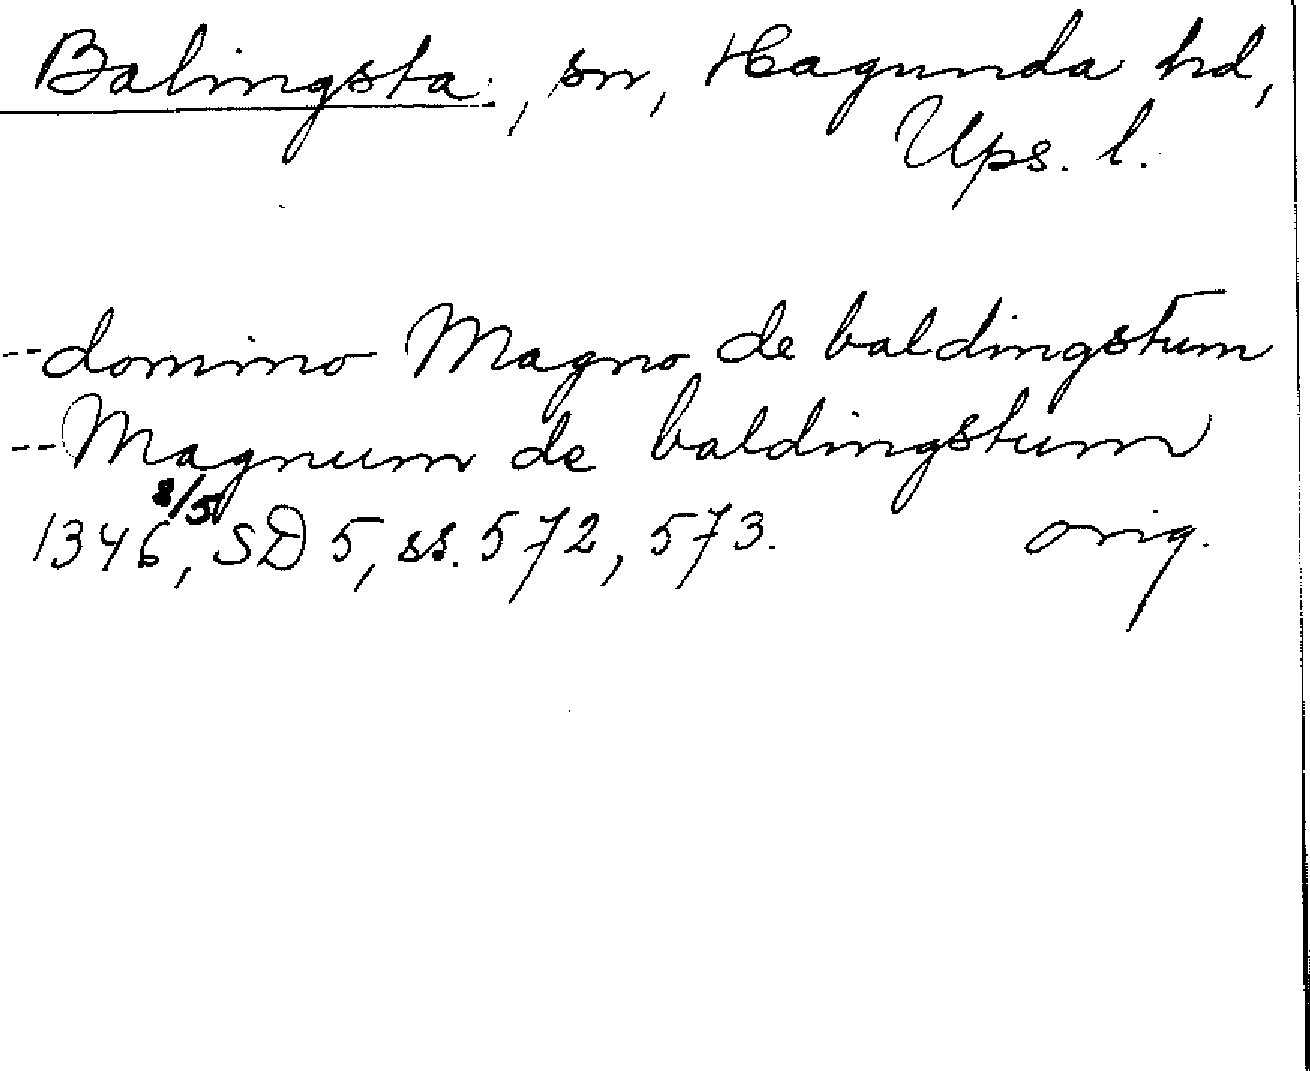 Balingsta, sn, Hagunda hd,
Ups. l.
--domino Magno de baldingstum
--Magnum de baldingstum
1346 8/5, SD 5, ss. 572, 573. orig.